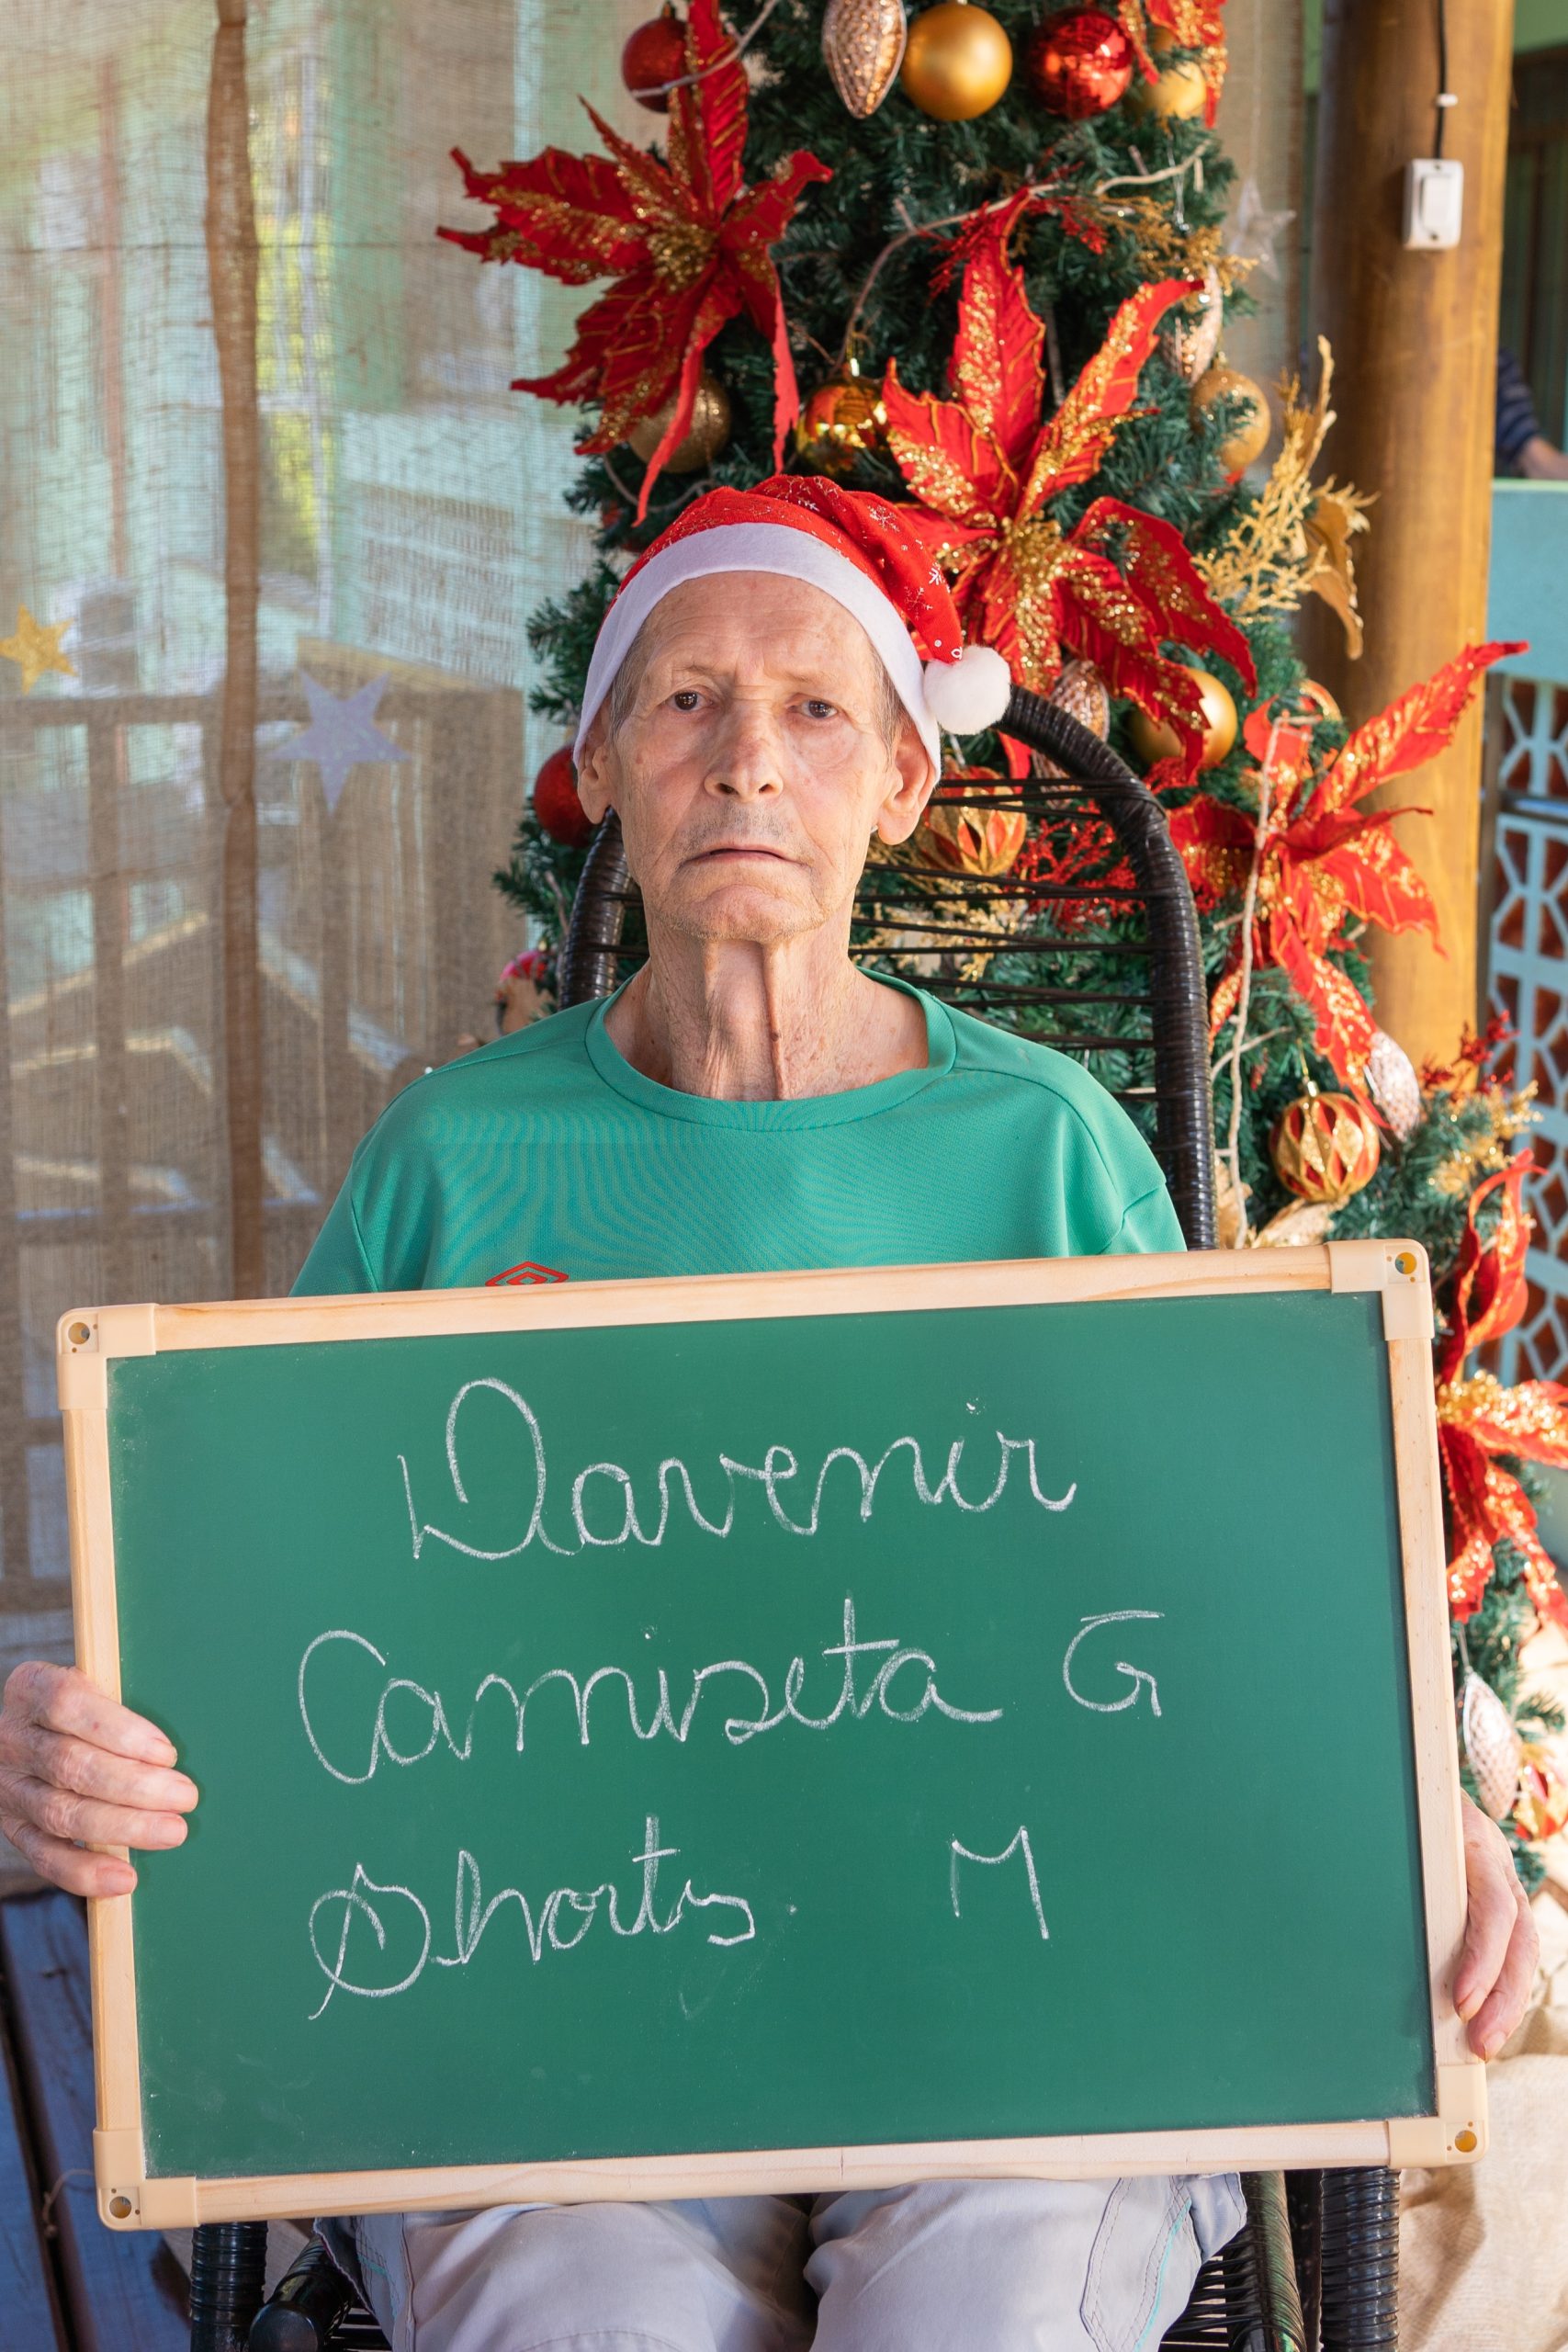 Davenir
Camiseta G
Shorts. M